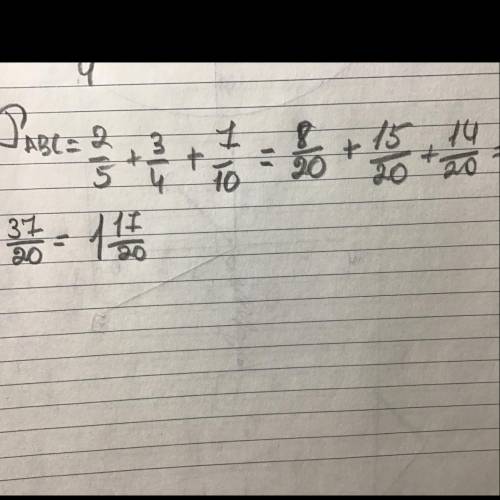 P ABC = 2/5 + 3/4 + 7/10 = 8/20 + 15/20 + 14/20 =
37/20 = 1 17/20